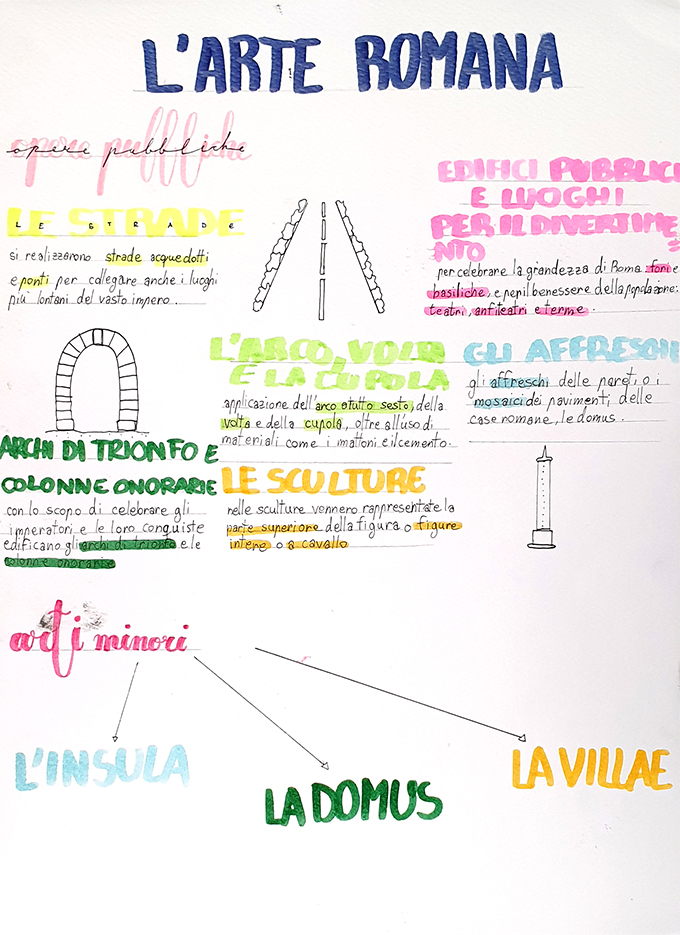 L'ARTE ROMANA
opere pubbliche
LE STRADE
si realizzarono strade acquedotti
e ponti per collegare anche i luoghi
più lontani del vasto impero.
EDIFICI PUBBLICI
E LUOGHI
PER IL DIVERTIME=
NTO
per celebrare la grandezza di Roma fori e
basiliche, e per il benessere della popolazione:
teatri, anfiteatri e terme.
L'ARCO, VOLTA
E LA CUPOLA
applicazione dell'arco a tutto sesto, della
volta e della cupola, oltre all'uso di
materiali come i mattoni e il cemento.
GLI AFFRESCHI
gli affreschi delle pareti o i
mosaici dei pavimenti delle
case romane, le domus.
ARCHI DI TRIONFO E
COLONNE ONORARIE
con lo scopo di celebrare gli
imperatori e le loro conquiste
edificano gli archi di trionfo e le
colonne onorarie
LE SCULTURE
nelle sculture vennero rappresentate la
parte superiore della figura o figure
intere o a cavallo
arti minori
L'INSULA
LA DOMUS
LA VILLAE